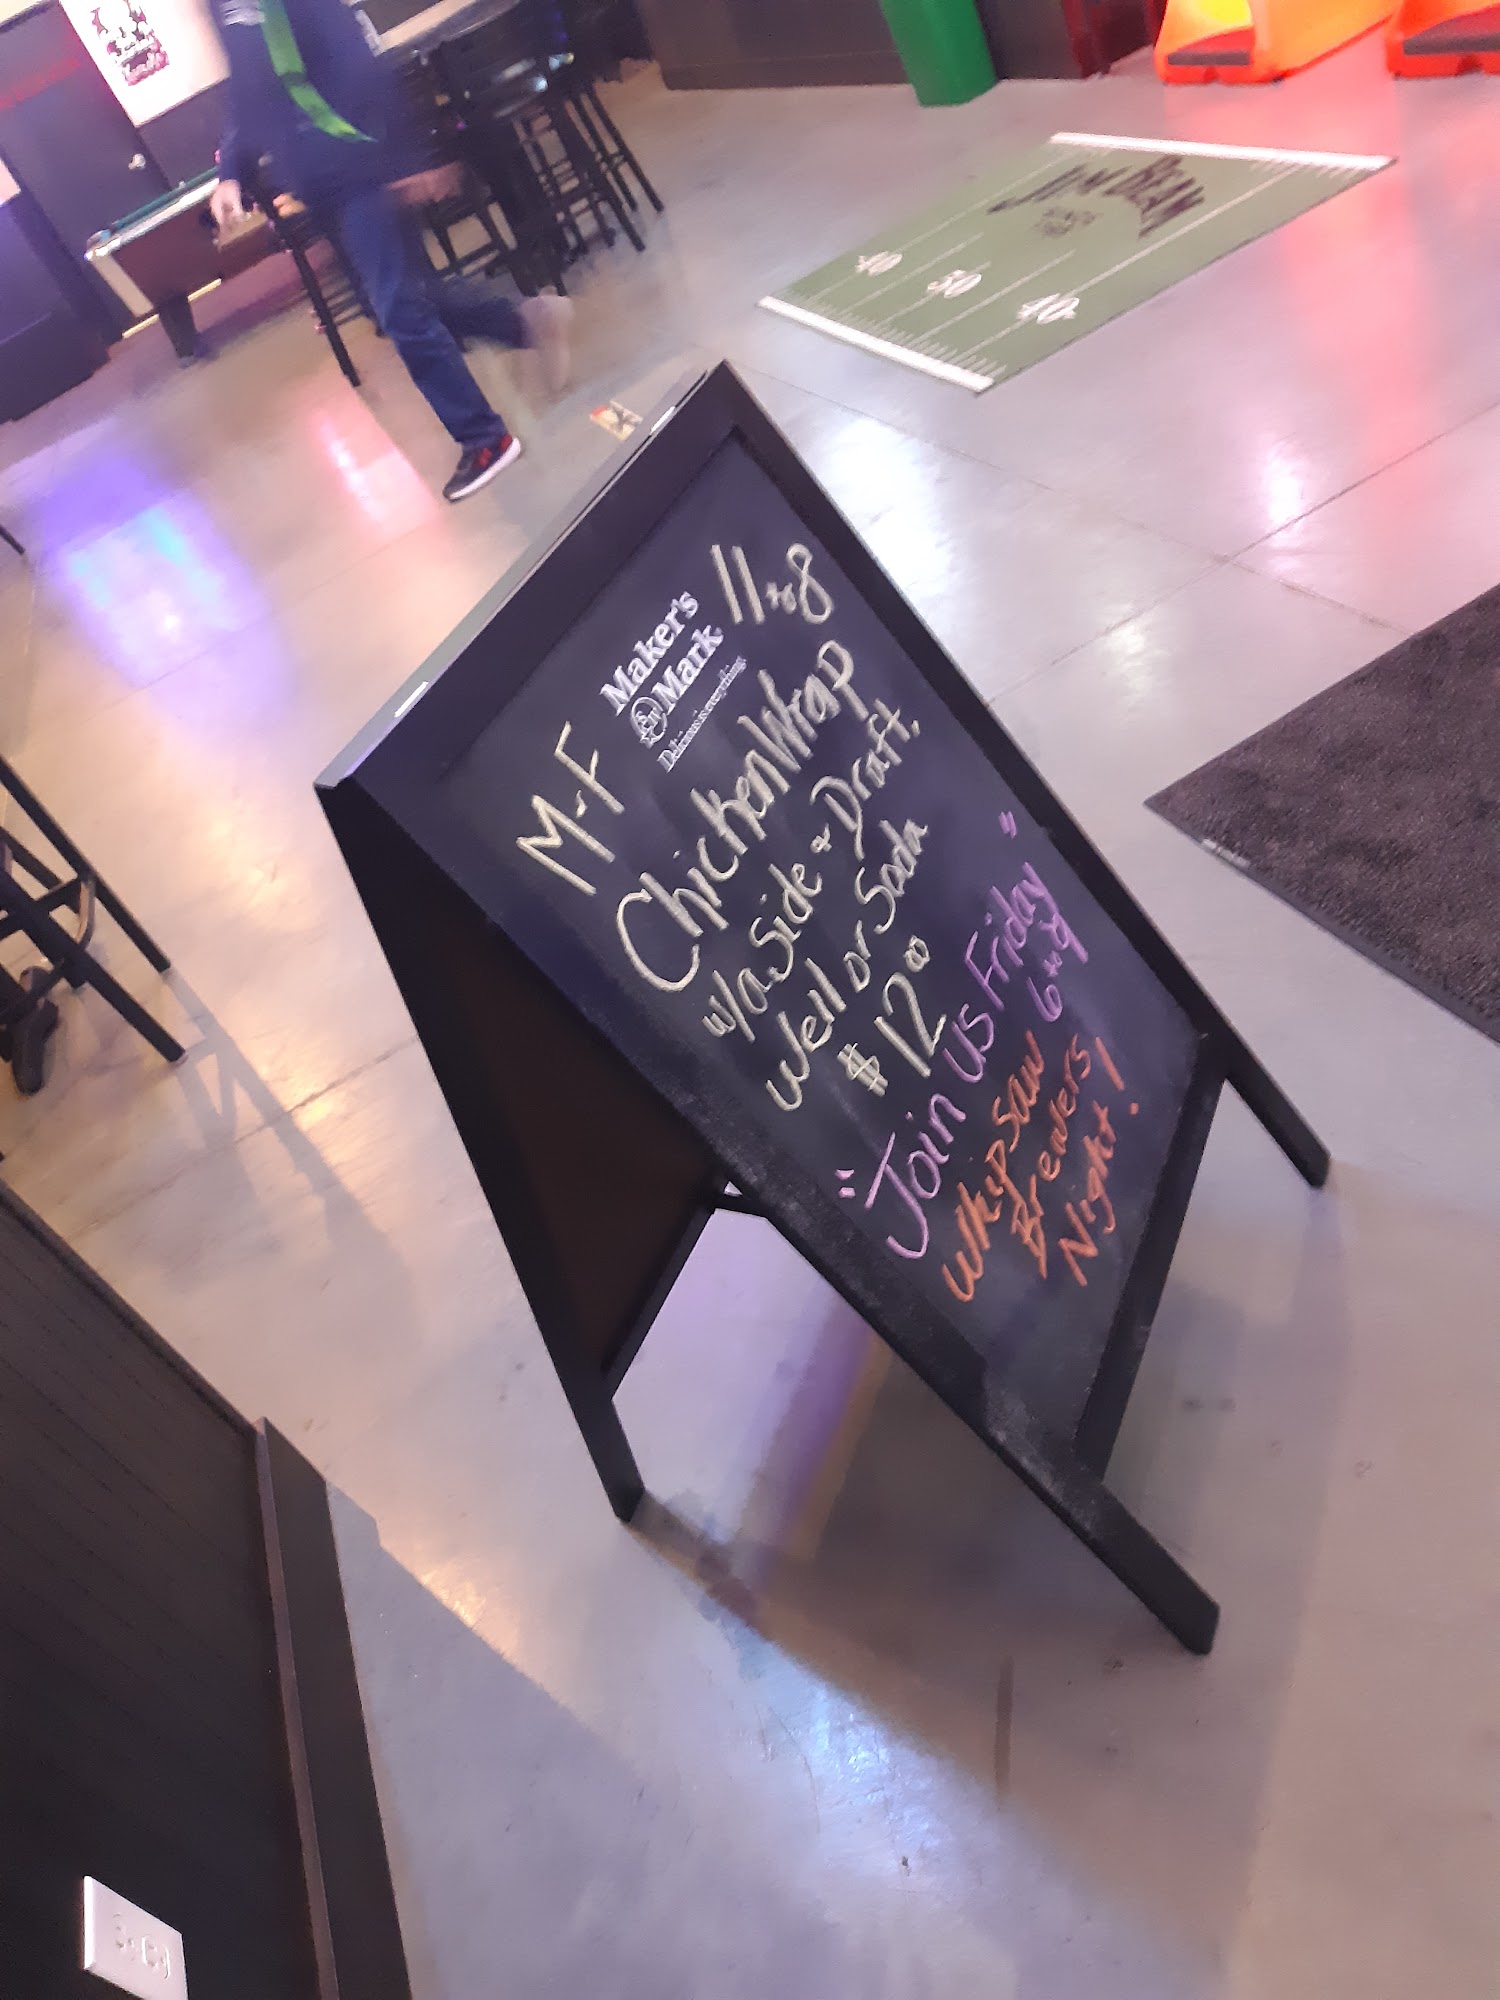 M-F
Maker's
Mark
Delicious is everything.
11 to 8
Chicken Wrap
w/a side + Draft,
Well or Soda
$12.00
"Join us Friday"
6 to 9
Whipsaw
Brewers
Night!
JIM BEAM
40
50
40